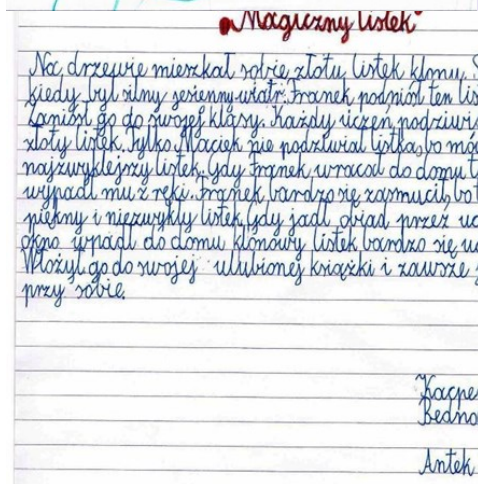 „Magiczny listek”
Na drzewie mieszkał sobie złoty listek klonu.
kiedy był silny jesienny wiatr. Franek podniósł ten lis
zaniósł go do swojej klasy. Każdy uczeń podziwi
złoty listek. Tylko Maciek nie podziwiał listka, bo mó
najzwyklejszy listek. Gdy Franek wracał do domu
wypadł mu z ręki. Franek bardzo się zasmucił, bo
piękny i niezwykły listek. Gdy jadł obiad przez uc
okno wpadł do domu klonowy listek bardzo się uc
Włożył go do swojej ulubionej książki i zawsze
przy sobie.
Kacpe
Bedno
Antek